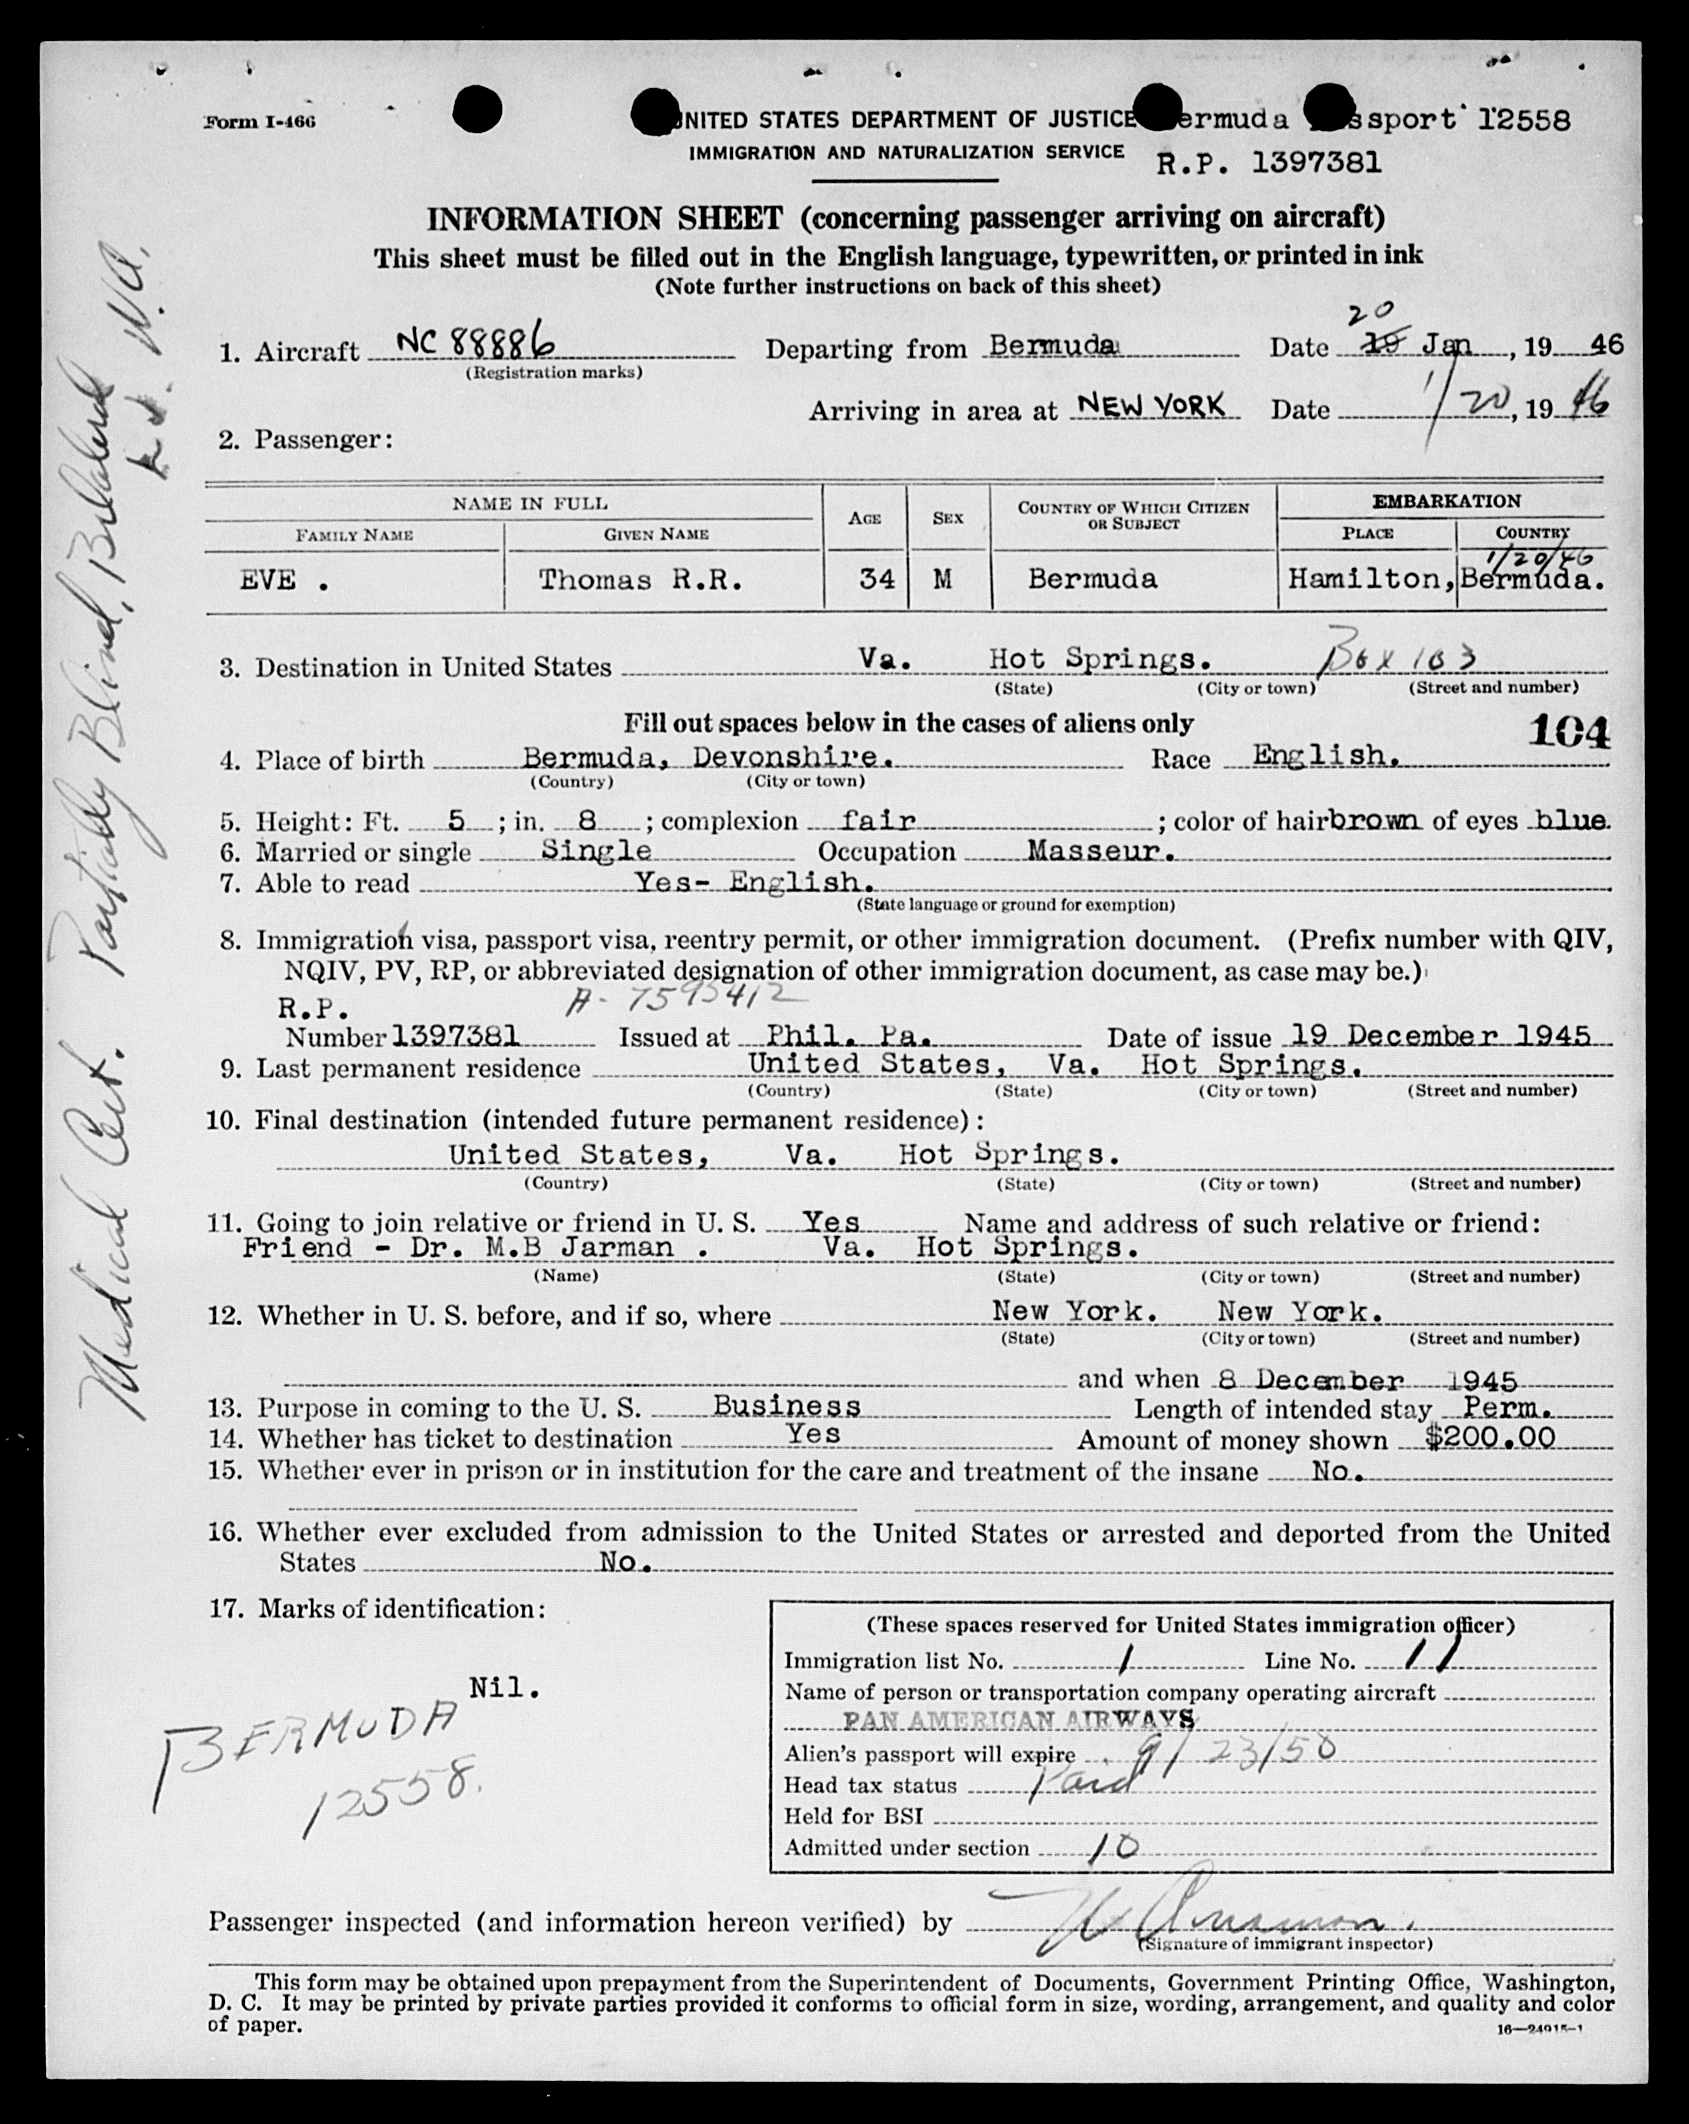 Form I-466
UNITED STATES DEPARTMENT OF JUSTICE Bermuda Passport 12558
IMMIGRATION AND NATURALIZATION SERVICE R.P. 1397381
INFORMATION SHEET (concerning passenger arriving on aircraft)
This sheet must be filled out in the English language, typewritten, or printed in ink
(Note further instructions on back of this sheet)
20
1. Aircraft NC 88886 Departing from Bermuda Date Jan , 19 46
(Registration marks)
Arriving in area at NEW YORK Date 1/20, 19 46
2. Passenger:
NAME IN FULL AGE SEX COUNTRY OF WHICH CITIZEN OR SUBJECT EMBARKATION
FAMILY NAME GIVEN NAME PLACE COUNTRY
1/20/46
EVE . Thomas R.R. 34 M Bermuda Hamilton, Bermuda.
3. Destination in United States Va. Hot Springs. Box 103
(State) (City or town) (Street and number)
Fill out spaces below in the cases of aliens only 104
4. Place of birth Bermuda, Devonshire. Race English.
(Country) (City or town)
5. Height: Ft. 5 ; in. 8 ; complexion fair ; color of hair brown of eyes blue.
6. Married or single Single Occupation Masseur.
7. Able to read Yes- English.
(State language or ground for exemption)
8. Immigration visa, passport visa, reentry permit, or other immigration document. (Prefix number with QIV,
NQIV, PV, RP, or abbreviated designation of other immigration document, as case may be.)
R.P. A-7595412
Number 1397381 Issued at Phil. Pa. Date of issue 19 December 1945
9. Last permanent residence United States, Va. Hot Springs.
(Country) (State) (City or town) (Street and number)
10. Final destination (intended future permanent residence):
United States, Va. Hot Springs.
(Country) (State) (City or town) (Street and number)
11. Going to join relative or friend in U. S. Yes Name and address of such relative or friend:
Friend - Dr. M.B Jarman . Va. Hot Springs.
(Name) (State) (City or town) (Street and number)
12. Whether in U. S. before, and if so, where New York. New York.
(State) (City or town) (Street and number)
and when 8 December 1945
13. Purpose in coming to the U. S. Business Length of intended stay Perm.
14. Whether has ticket to destination Yes Amount of money shown $200.00
15. Whether ever in prison or in institution for the care and treatment of the insane No.
16. Whether ever excluded from admission to the United States or arrested and deported from the United
States No.
17. Marks of identification:
Nil.
BERMUDA
12558.
(These spaces reserved for United States immigration officer)
Immigration list No. 1 Line No. 11
Name of person or transportation company operating aircraft
PAN AMERICAN AIRWAYS
Alien's passport will expire 9/23/50
Head tax status Paid
Held for BSI
Admitted under section 10
Passenger inspected (and information hereon verified) by
(Signature of immigrant inspector)
This form may be obtained upon prepayment from the Superintendent of Documents, Government Printing Office, Washington,
D. C. It may be printed by private parties provided it conforms to official form in size, wording, arrangement, and quality and color
of paper.
16—24915-1
Medical Cert. Partially Blind, Bilateral